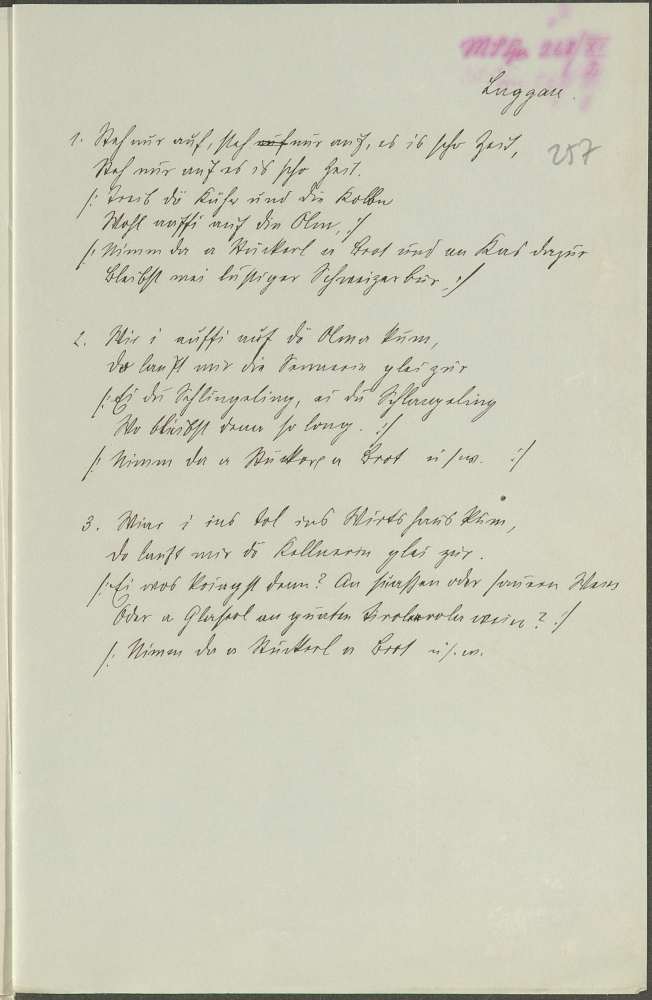 Luggau.
257
1. Steh nur auf, steh auf nur auf, es is scho Zeit,
Steh nur auf es is scho Zeit.
/: Treib dö Küh und die Kolbn
Wohl auffi auf die Olm, :/
/: Nimm da a Stückerl a Brot und an Kas dazur
Bleibst mei lustiger Schweizerbur :/
2. Wie i auffi auf dö Olma kum,
Da lauft mir die Sennerin glei zur
/: Ei du Schlingeling, ei du Schlangeling
Wo bleibst denn so long. :/
/: Nimm da a Stückerl a Brot u.s.w. :/
3. Wiar i ins Tol ins Wirtshaus kum,
Da lauft mir dö Kellnerin glei zur.
/: Ei wos kriagst denn? An süassen oder sauren Wein
Oder a Glaserl an guaten Tirolerwein? :/
/: Nimm da a Stückerl a Brot u.s.w.